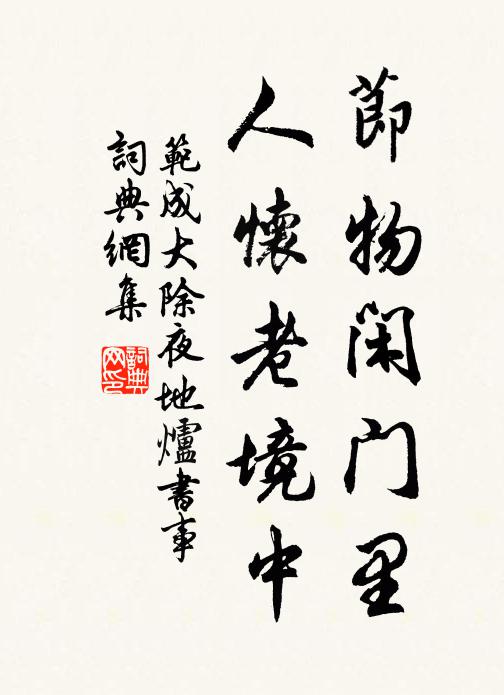 節物閑门里
人懷老境中
範成大除夜地爐書事
詞典網集
詞典网印